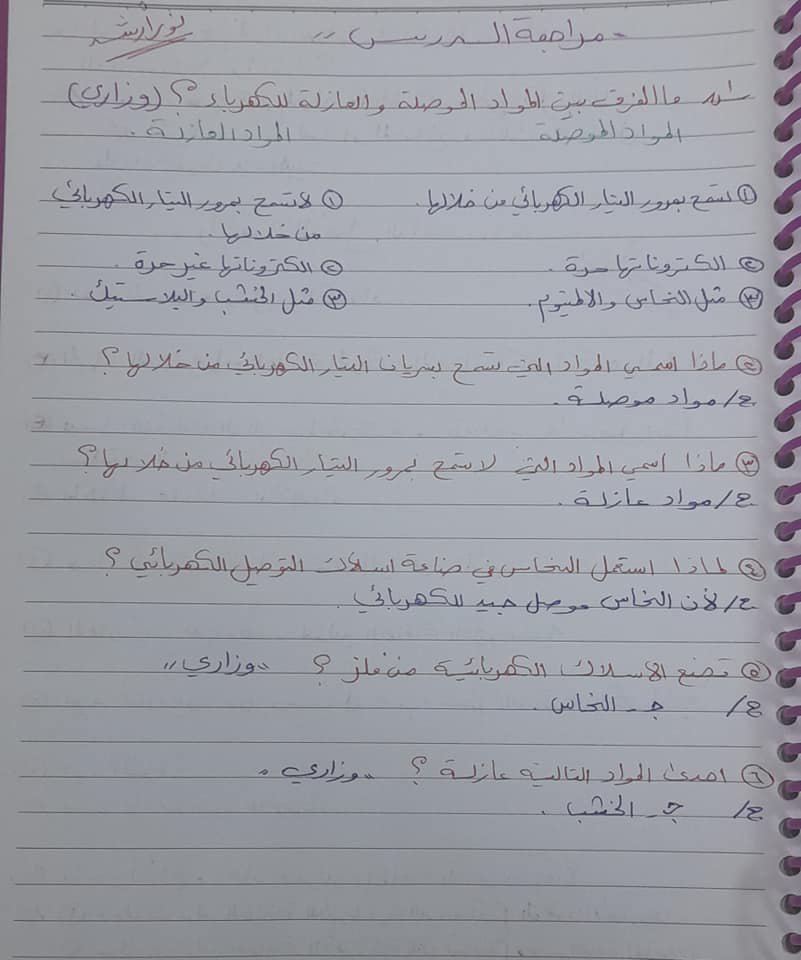 - مراجعة الدرس -
س١/ ما الفرق بين المواد الموصلة والعازلة للكهرباء ؟ (وزاري)
المواد الموصلة المواد العازلة .
① تسمح بمرور التيار الكهربائي من خلالها . ① لا تسمح بمرور التيار الكهربائي
من خلالها .
② الكتروناتها حرة . ② الكتروناتها غير حرة .
③ مثل النحاس والالمنيوم . ③ مثل الخشب والبلاستيك .
② ماذا اسمي المواد التي تسمح بسريان التيار الكهربائي من خلالها ؟
ج/ مواد موصلة .
③ ماذا اسمي المواد التي لا تسمح بمرور التيار الكهربائي من خلالها ؟
ج/ مواد عازلة .
④ لماذا استعمل النحاس في صناعة اسلاك التوصيل الكهربائي ؟
ج/ لأن النحاس موصل جيد للكهربائي .
⑤ تصنع الاسلاك الكهربائية من فلز ؟ "وزاري"
ج/ جـ - النحاس .
⑥ احدى المواد التالية عازلة ؟ "وزاري"
ج/ جـ - الخشب .